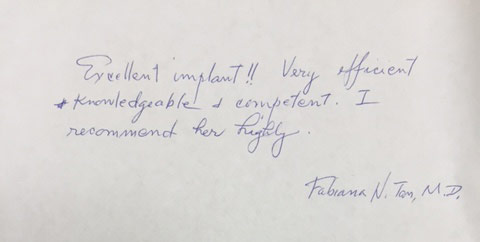 Excellent implant!! Very efficient
& Knowledgeable & competent. I
recommend her highly.
Fabiana N. Tan, M.D.